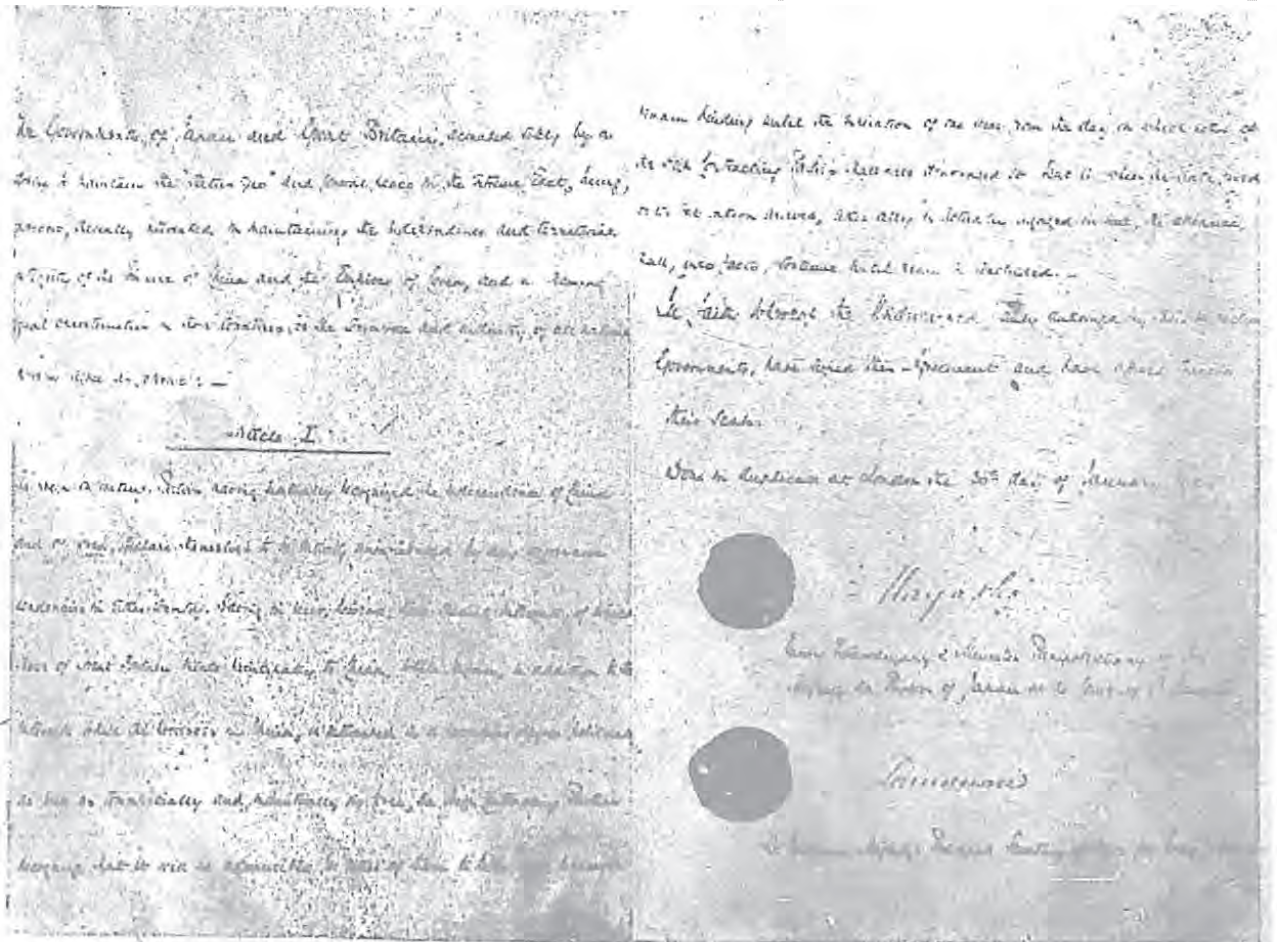 The Governments of Japan and Great Britain, actuated solely by a
desire to maintain the status quo and general peace in the Extreme East, being,
moreover, specially interested in maintaining the independence and territorial
integrity of the Empire of China and the Empire of Corea, and in securing
equal opportunities in those countries for the commerce and industry of all nations
Article I
The High Contracting Parties having mutually recognized the independence of China
and of Corea, declare themselves to be entirely uninfluenced by any aggressive
tendencies in either country. Having in view, however, their special interests, of which
those of Great Britain relate principally to China, while Japan, in addition to the
interests which she possesses in China, is interested in a peculiar degree politically
as well as commercially and industrially in Corea, the High Contracting Parties
recognize that it will be admissible for either of them to take such measures
remain binding until the expiration of one year from the day on which either of
the High Contracting Parties shall have denounced it. But if, when the date fixed
for its expiration arrives, either ally is actually engaged in war, the alliance
shall, ipso facto, continue until peace is concluded.—
In faith whereof the Undersigned, duly authorized by their respective
Governments, have signed this Agreement and have affixed thereto
their Seals.
Done in duplicate at London the 30th day of January
Hayashi
Envoy Extraordinary & Minister Plenipotentiary of His
Majesty the Emperor of Japan at the Court of St. James
Lansdowne
His Britannic Majesty's Principal Secretary of State for Foreign Affairs